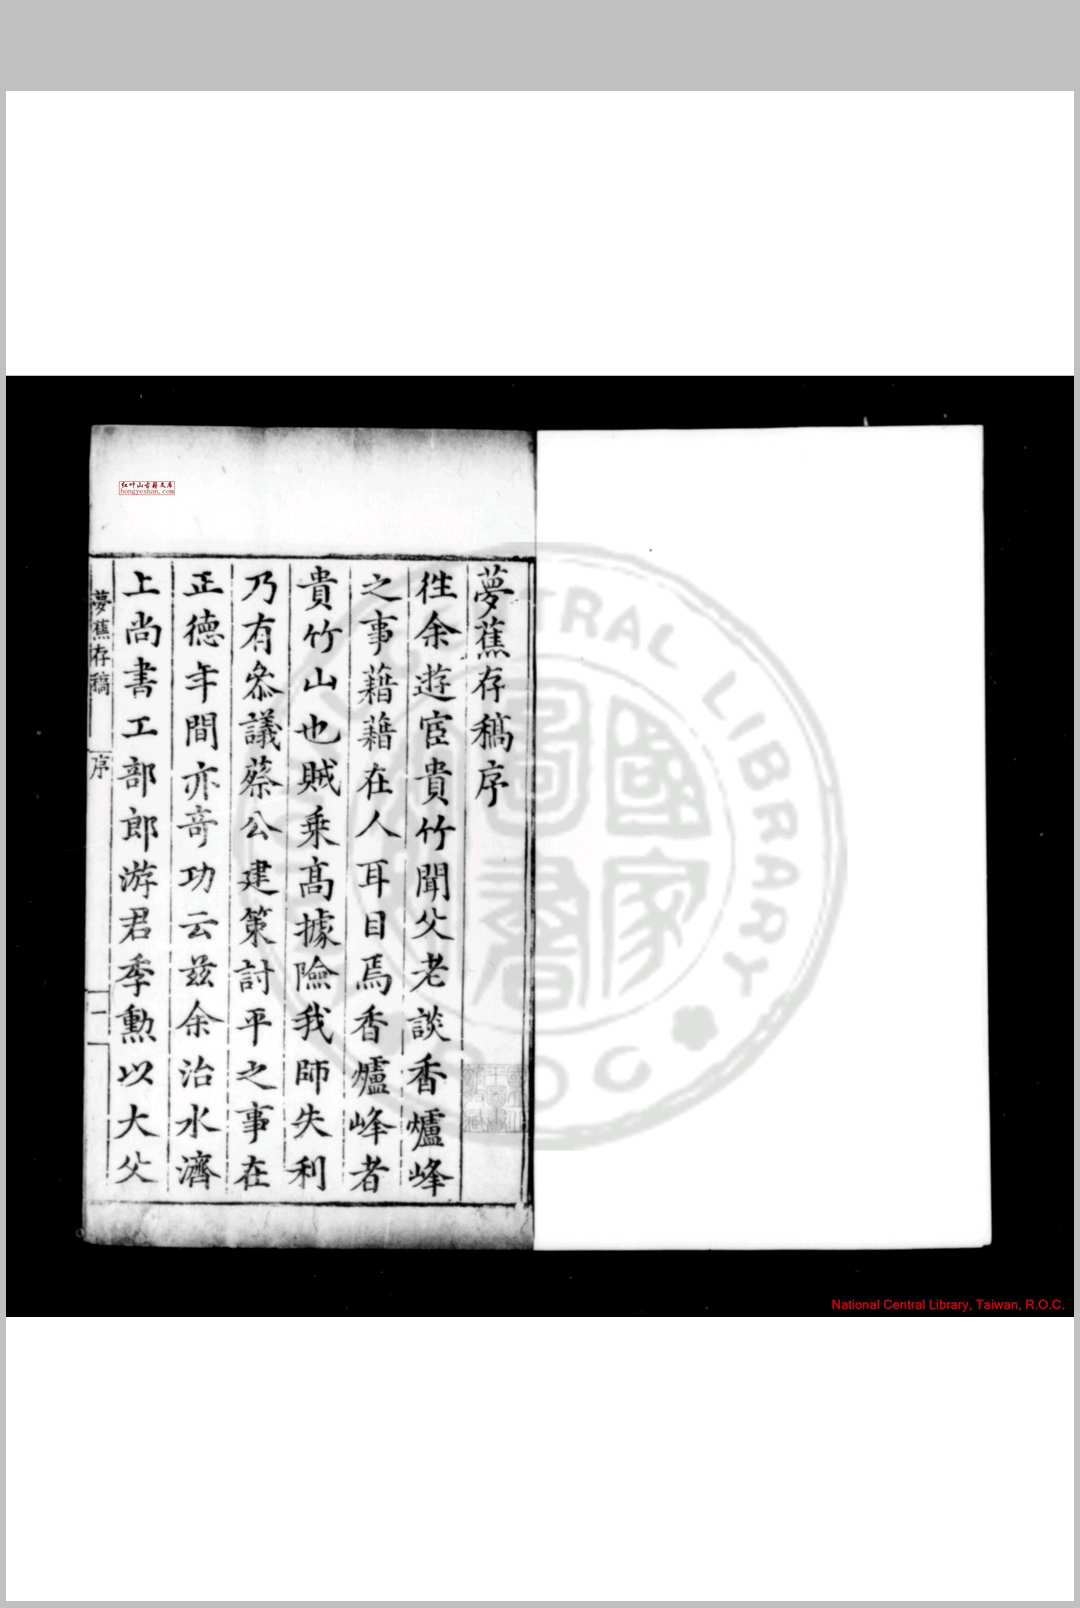 夢蕉存稿序
徃余遊宦貴竹聞父老談香爐峰
之事藉藉在人耳目焉香爐峰者
貴竹山也賊乗髙據險我師失利
乃有叅議蔡公建策討平之事在
正德年間亦竒功云茲余治水濟
上尚書工部郎游君季勳以大父
夢蕉存稿
序
一
红叶山古籍文库
hongyeshan.com
CENTRAL LIBRARY
R.O.C
國家圖書
National Central Library, Taiwan, R.O.C.